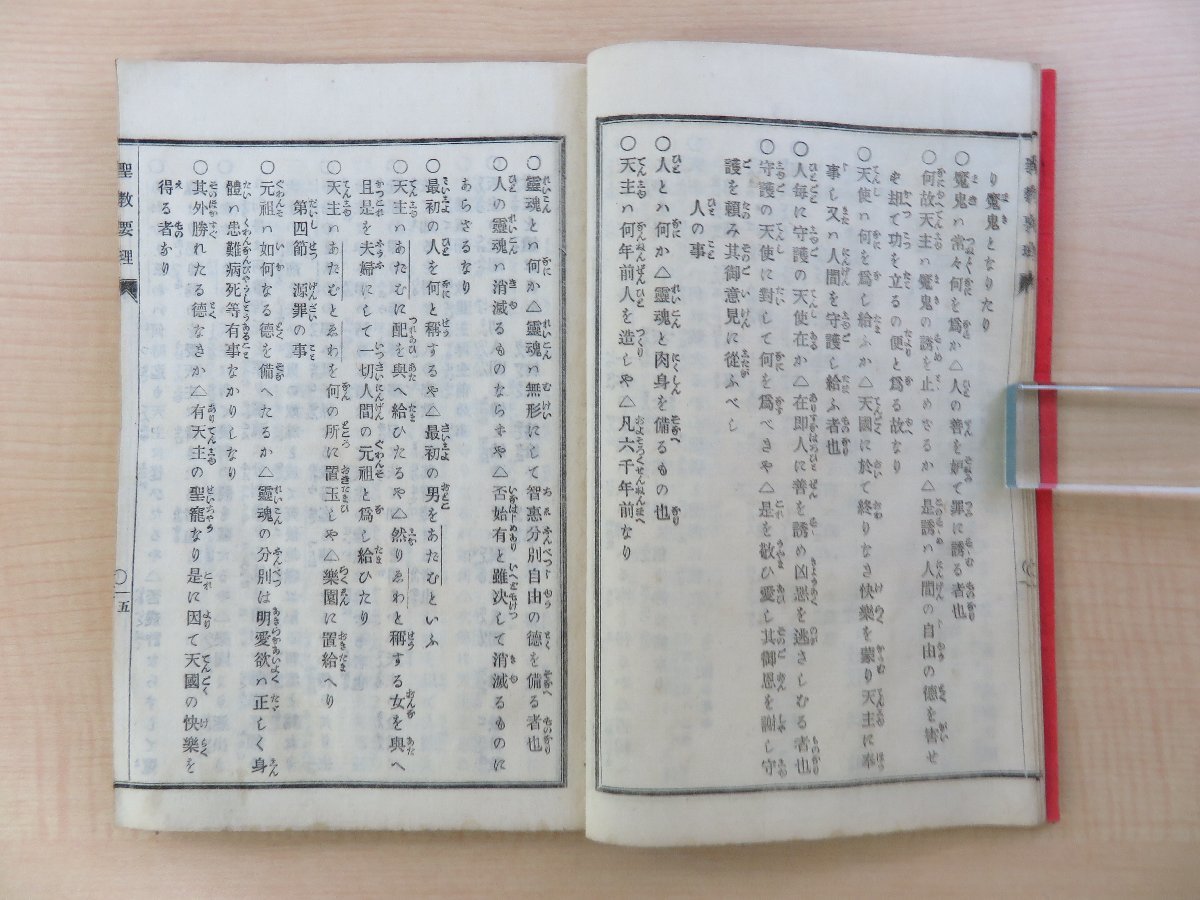 り魔鬼となりたり
〇魔鬼ハ常々何を爲か△人の善を妒て罪に誘る者也
〇何故天主ハ魔鬼の誘を止めさるか△是誘ハ人間の自由の德を害せ
ず却て功を立るの便と爲る故なり
〇天使ハ何を爲し給ふか△天國に於て終りなき快樂を蒙り天主に奉
事し又ハ人間を守護し給ふ者也
〇人毎に守護の天使在か△在即人に善を誘め凶惡を逃さしむる者也
〇守護の天使に對して何を爲べきや△是を敬ひ愛し其御恩を謝し守
護を頼み其御意見に從ふべし
人の事
〇人とハ何か△靈魂と肉身を備るもの也
〇天主ハ何年前人を造しや△凡六千年前なり
〇靈魂とハ何か△靈魂ハ無形にして智惠分別自由の德を備る者也
〇人の靈魂ハ消滅るものならずや△否始有と雖決して消滅るものに
あらさるなり
〇最初の人を何と稱するや△最初の男をあだむといふ
〇天主ハあだむに配を與へ給ひたるや△然りゑわと稱する女を與へ
且是を夫婦にして一切人間の元祖と爲し給ひたり
〇天主ハあだむとゑわを何の所に置玉しや△樂園に置給へり
第四節 源罪の事
〇元祖ハ如何なる德を備へたるか△靈魂の分別は明愛欲ハ正しく身
體ハ患難病死等有事なかりしなり
〇其外勝れたる德なきか△有天主の聖寵なり是に因て天國の快樂を
得る者なり
聖教要理
〇五